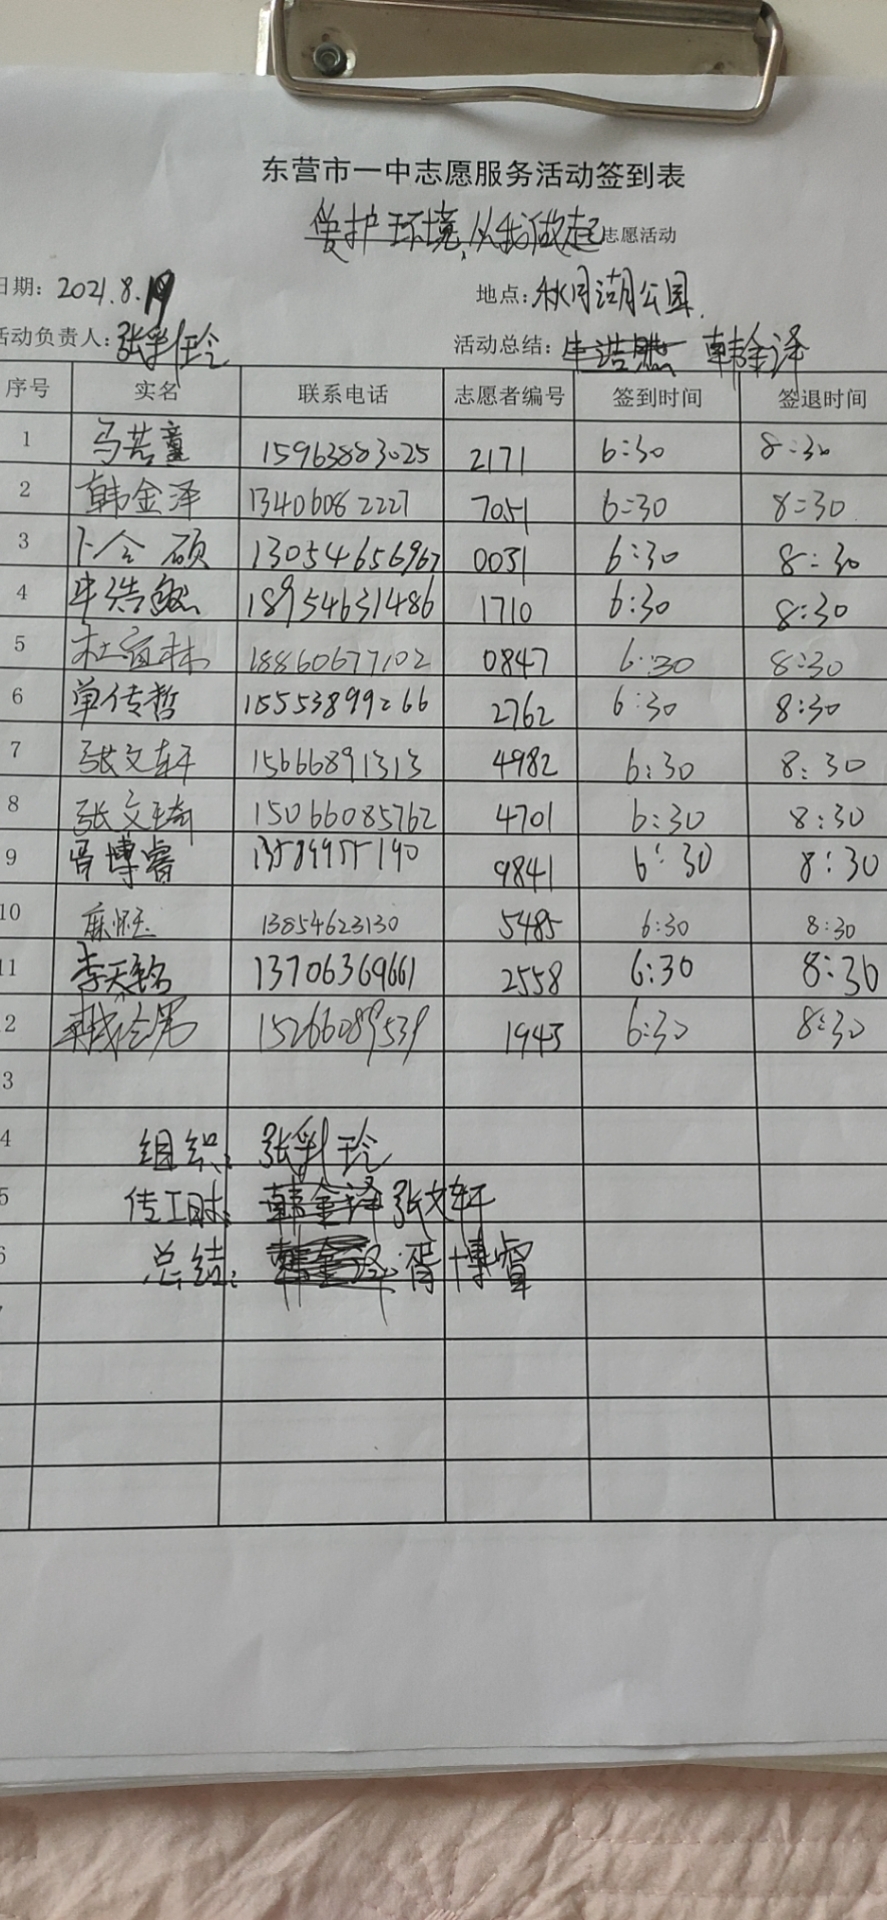 东营市一中志愿服务活动签到表
爱护环境,从我做起志愿活动
日期: 2021.8.19 地点: 秋月湖公园.
活动负责人: 张乳玲 活动总结: 牛浩然 韩金泽
序号 实名 联系电话 志愿者编号 签到时间 签退时间
1 马若童 15963883025 2171 6:30 8:30
2 韩金泽 13406082227 7051 6:30 8:30
3 卜令硕 13054656967 0031 6:30 8:30
4 牛浩然 18954631486 1710 6:30 8:30
5 杜宜林 18860677102 0847 6:30 8:30
6 单传哲 15553899266 2762 6:30 8:30
7 张文轩 15666891313 4982 6:30 8:30
8 张文琦 15066085762 4701 6:30 8:30
9 胥博睿 13589955190 9841 6:30 8:30
10 麻怀玉 13854623130 5485 6:30 8:30
11 李天铭 13706369661 2558 6:30 8:30
2 15266089539 1943 6:30 8:30
3
4 组织: 张乳玲
5 传工时: 韩金泽 张文轩
6 总结: 韩金泽 胥博睿